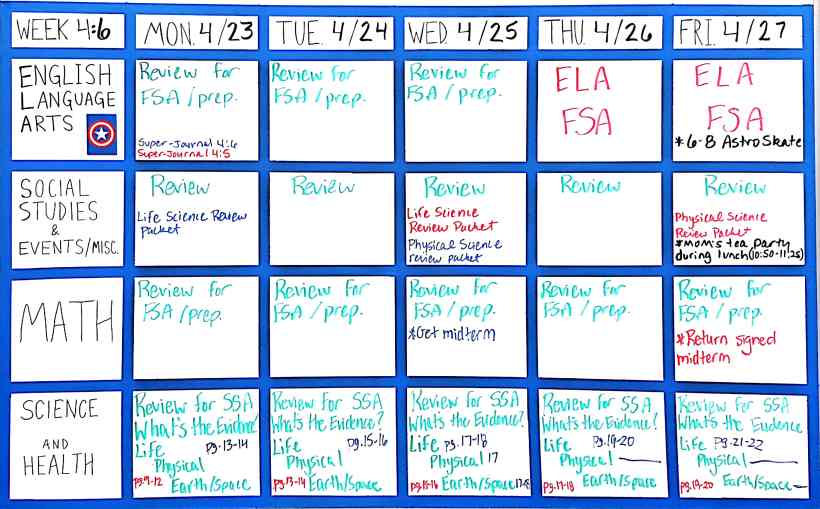 WEEK 4:6
MON. 4/23
TUE. 4/24
WED. 4/25
THU. 4/26
FRI. 4/27
ENGLISH
LANGUAGE
ARTS
Review for
FSA/prep.
Super-Journal 4:6
Super-Journal 4:5
Review for
FSA/prep.
Review for
FSA/prep.
ELA
FSA
ELA
FSA
*6-8 AstroSkate
SOCIAL
STUDIES
&
EVENTS/MISC.
Review
Life Science Review
packet
Review
Review
Life Science
Review Packet
Physical Science
review packet
Review
Review
Physical Science
Review Packet
*Mom's tea party
during lunch(10:50-11:25)
MATH
Review for
FSA/prep.
Review for
FSA/prep.
Review for
FSA/prep.
*Get midterm
Review for
FSA/prep.
Review for
FSA/prep.
*Return signed
midterm
SCIENCE
AND
HEALTH
Review for SSA
What's the Evidence?
Life pg.13-14
Physical
pg.9-12 Earth/Space
Review for SSA
What's the Evidence?
Life pg.15-16
Physical
pg.13-14 Earth/Space
Review for SSA
What's the Evidence?
Life pg.17-18
Physical 17
pg.15-16 Earth/Space 17-18
Review for SSA
What's the Evidence?
Life pg.19-20
Physical
pg.17-18 Earth/Space
Review for SSA
What's the Evidence
Life pg.21-22
Physical
pg.19-20 Earth/Space